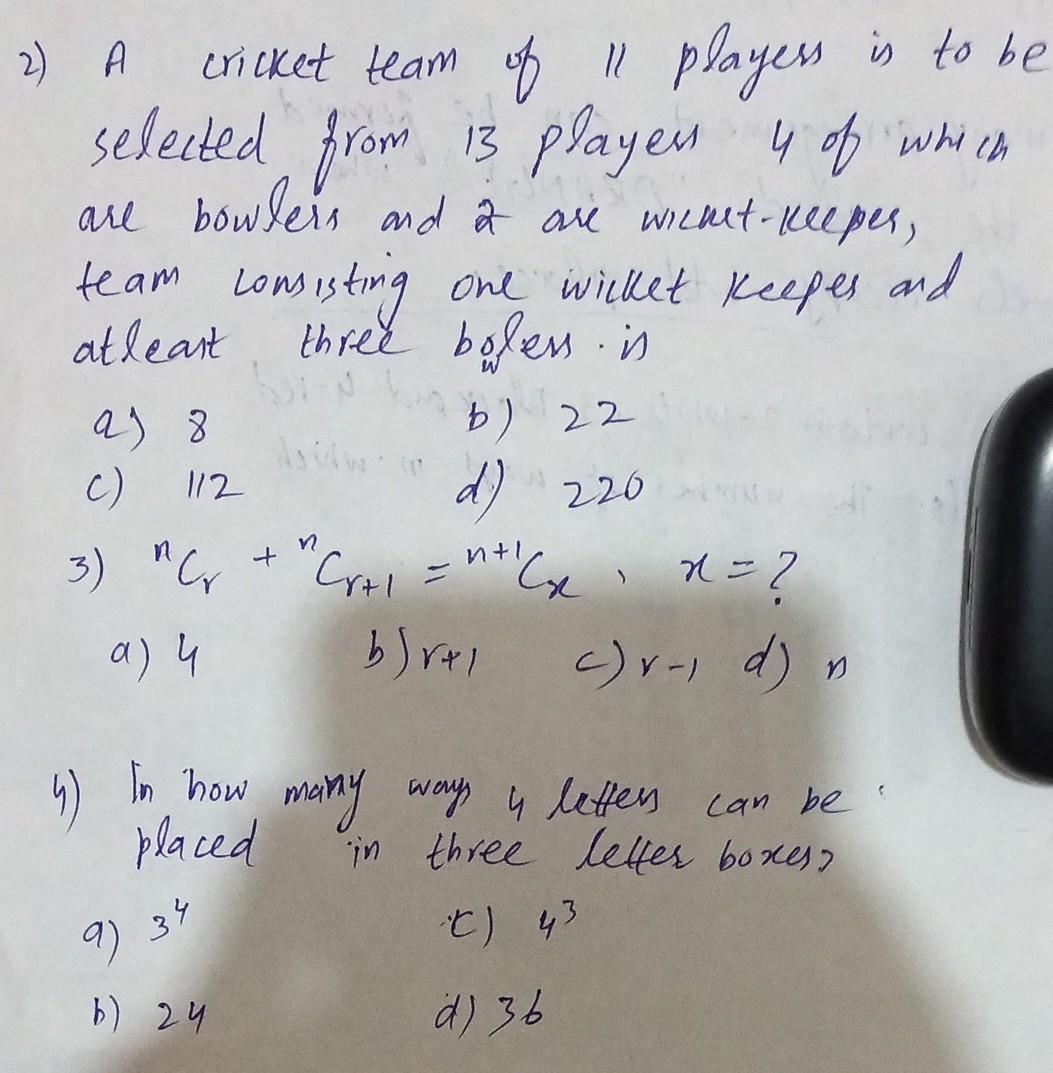 2) A cricket team of 11 players is to be
selected from 13 players 4 of which
are bowlers and 2 are wicket-keeper,
team consisting one wicket keeper and
atleast three bolers is
w
a) 8 b) 22
c) 112 d) 220
3) ⁿCᵣ + ⁿCᵣ₊₁ = ⁿ⁺¹Cₓ , x = ?
a) 4 b) r+1 c) r-1 d) n
4) In how many ways 4 letters can be
placed in three letter boxes,
a) 3⁴ c) 4³
b) 24 d) 36